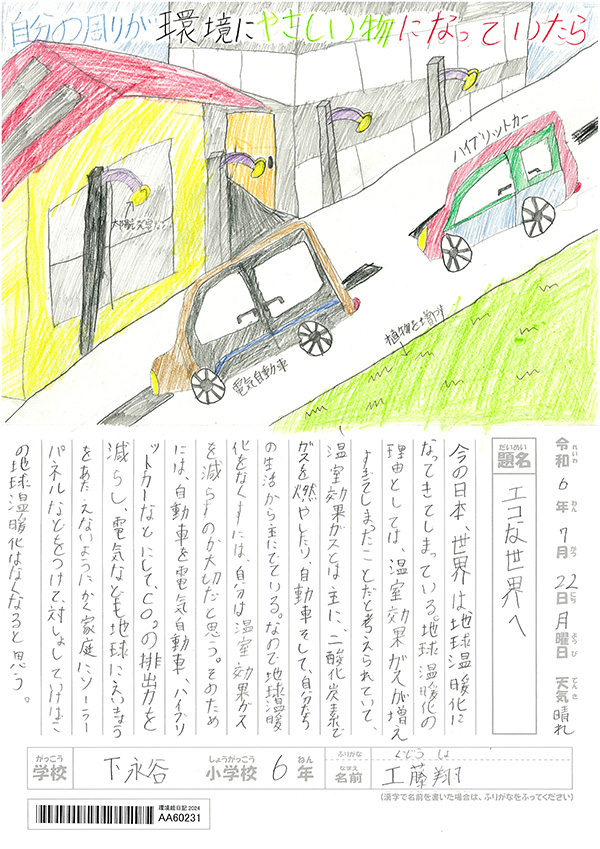 自分の周りが環境にやさしい物になっていたら
ハイブリットカー
電気自動車
植物を増やす
令和6年7月22日月曜日 天気 晴れ
れいわ ねん がつ にち ようび てんき
だいめい
題名 エコな世界へ
今の日本、世界は、地球温暖化に
なってきてしまっている。地球温暖化の
理由としては、温室効果ガスが増え
すぎてしまったことだと考えられていて、
温室効果ガスとは主に、二酸化炭素で
ガスを燃やしたり、自動車そして、自分たち
の生活から主にでている。なので地球温暖
化をなくすには、自分は温室効果ガス
を減らすのが大切だと思う。そのため
には、自動車を電気自動車、ハイブリ
ットカーなどにして、CO₂の排出力を
減らし、電気なども地球にえいきょう
をあたえないようにかく家庭にソーラー
パネルなどをつけて、対しょしていけばこ
の地球温暖化はなくなると思う。
がっこう しょうがっこう ねん ふりがな くどう しょ
学校 下永谷 小学校 6年 なまえ 名前 工藤翔
(漢字で名前を書いた場合は、ふりがなをふってください)
環境絵日記2024
AA60231